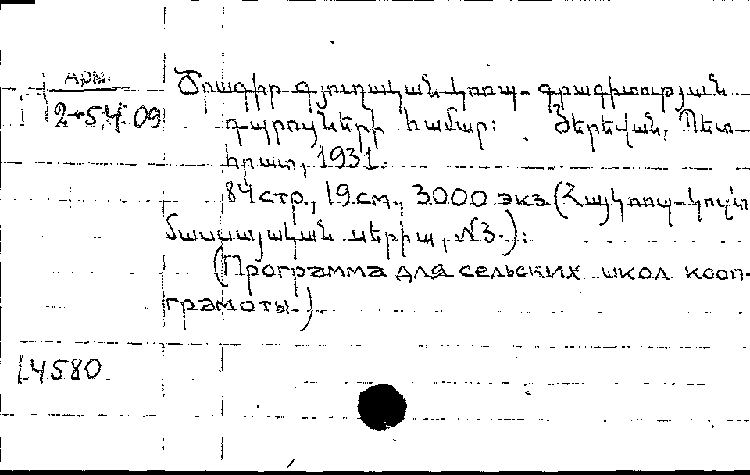 Арм.
2-5.4.09
Ծրագիր գյուղական կոոպ-գրագիտության
դպրոցների համար: Յերեվան, Պետ-
հրատ, 1931.
84 стр., 19 см., 3000 экз (Հայկոոպ-կուլտ
մասսայական սերիա, №3.):
(Программа для сельских школ кооп-
грамоты.).
4580